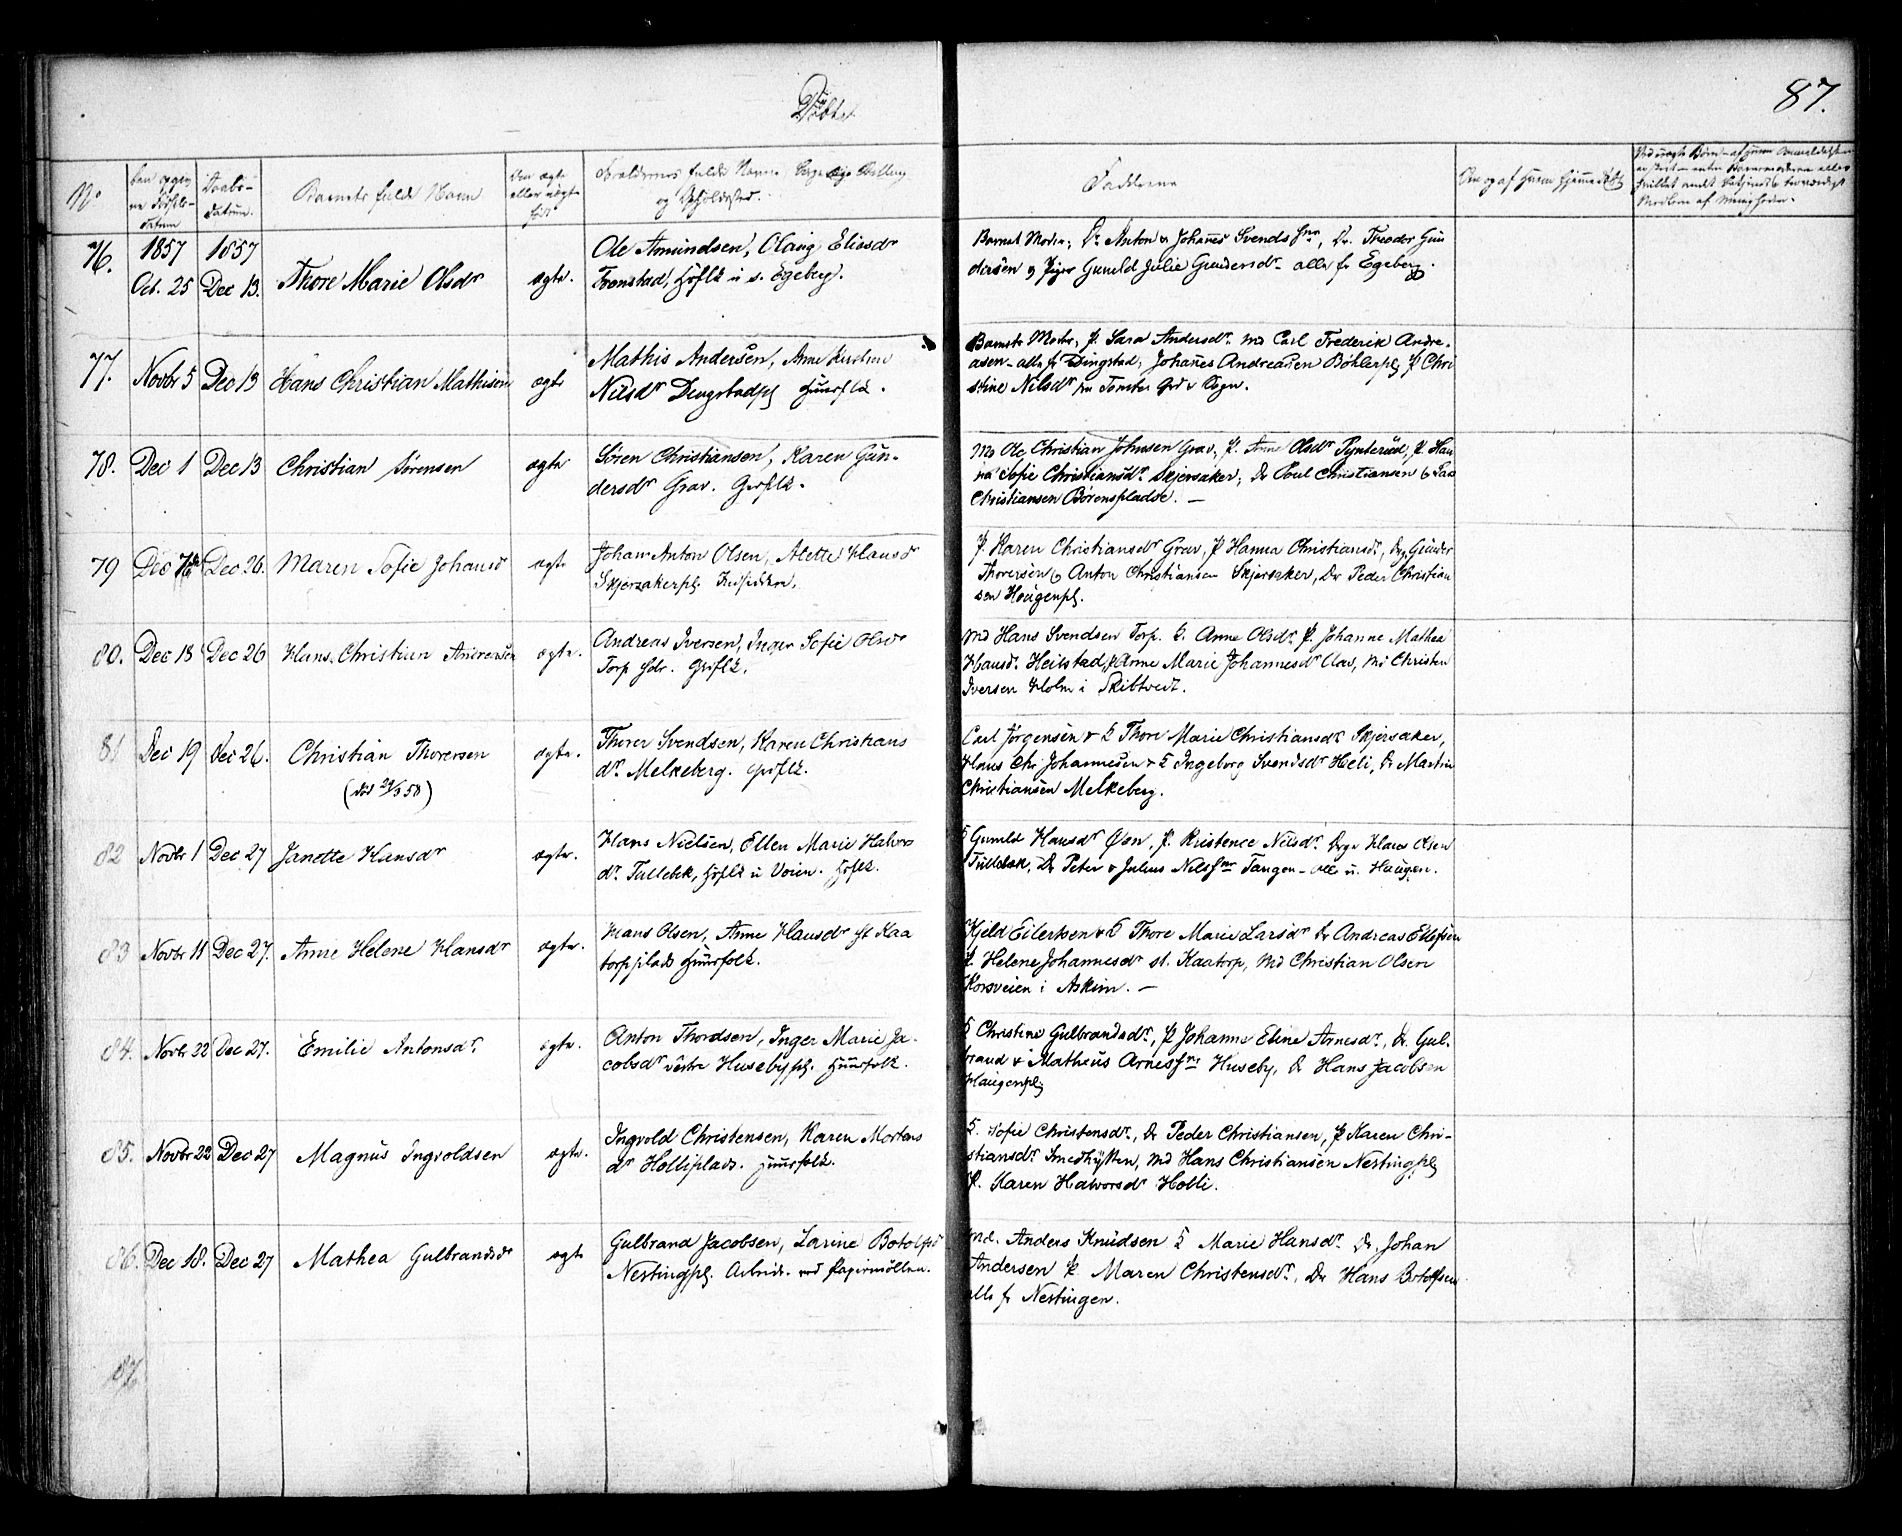 Döbte
87.
No
Barnets fulde Navn
Fadderne
76.
1857
Oct. 25
1857
Dec 13.
Thore Marie Olsdr
ægte.
Ole Amundsen, Olaug Eliasdr
Tronstad, u s. Egeberg.
Barnets Moder; Dr Anton & Johanes Svends Snr, Dr. Theodor Gun
dersen og Piger Gunild Julie Gundersdr alle fr Egeberg.
77.
Novbr 5
Dec 13
Hans Christian Mathisen
ægte
Mathis Andersen, Anne Kirstine
Nilsdr Dingstadpl Huusflk.
Barnets Moder, P. Sara Andersdr. Md Carl Frederik Andre-
asen - alle fr Dingstad, Johanes Andreasen Böhlerpl P Chri
stine Nilsdr fra Tomter Sogn.
78.
Dec 1
Dec 13
Christian Sörensen
ægte
Sören Christiansen, Karen Gun-
dersdr Grav. Grdflk.
Md Ole Christian Johnsen Grav, P. Anne Olsdr Pynterud, P. Han
na Sofie Christiansdr. Skjersaker, Dr Poul Christiansen &
Christiansen Börenspladse. —
79
Dec
Dec 26.
Maren Sofie Johansdr
ægte
Johan Anton Olsen, Alette Hansdr
Skjersakerpl
P. Karen Christiansdr Grav, P Hanna Christiansdr, Drge Gunder
Thoresen & Anton Christiansen Skjersaker, Dr Peder Christian
sen Hougenpl.
80.
Dec 13
Dec 26
Hans Christian Andreasen
ægte.
Andreas Iversen, Inger Sofie Olsdr
Torp sdr. Grdflk.
Md Hans Svendsen Torp. K. Anne Olsdr. P. Johanne Mathea
Hansdr. Heilstad, P Anne Marie Johannesdr Aas, Md Christen
Iversen Holm i Skibtvedt.
81
Dec 19
Dec 26.
Christian Thoresen
(död 29/3 58)
ægte.
Thorer Svendsen, Karen Christians
dr. Melkeberg. Grdflk.
Carl Jörgensen & K Thore Marie Christiansdr Skjersaker,
Hans Chr Johannesen & K Ingeborg Svendsdr Heli, Dr Martin
Christiansen Melkeberg.
82
Novbr 1
Dec 27
Janette Hansdr
ægte.
Hans Nielsen, Ellen Marie Halvors
dr. Tullebk, u Voien.
K Gunild Hansdr Öien, P. Kristence Nilsdr. Drge Hans Olsen
Tullebæk, Dr Peter & Julius Nils Snr Tangen - alle u. Haugen.
83
Novbr 11
Dec 27.
Anne Helene Hansdr
ægte.
Hans Olsen, Anne Hansdr st Kaa
torppladse Huusfolk.
Kjeld Eilertsen & K Thore Marie Larsdr Dr Andreas Ellefsen
P. Helene Johannesdr st. Kaatorp, Md Christian Olsen
Korsveien i Askim. —
84.
Novbr 22
Dec 27.
Emilie Antonsdr.
ægte.
Anton Thordsen, Inger Marie Ja-
cobsdr vestre Husebypl. Huusfolk.
K Christine Gulbrandsdr, P Johanne Eline Arnesdr, Dr. Gul-
brand & Matheus Arnes Snr Huseby, Dr Hans Jacobsen
Haugenpl
85.
Novbr 22
Dec 27
Magnus Ingvoldsen
ægte.
Ingvold Christensen, Karen Mortens
dr Holliplads. Huusfolk.
K. Sofie Christensdr, Dr Peder Christiansen, P Karen Chri-
stiansdr Smedhytten, Md Hans Christiansen Nestingpl
P. Karen Halvorsdr Holli.
86.
Dec 18.
Dec 27
Mathea Gulbrandsdr
ægte
Gulbrand Jacobsen, Larine Botolfsdr
Nestingpl. Arbeid. ved Papirmöllen.
Md. Anders Knudsen K Marie Hansdr. Dr. Johan
Andersen P. Maren Christensdr, Dr Hans Botolfsen
alle fr Nestingen.
87.